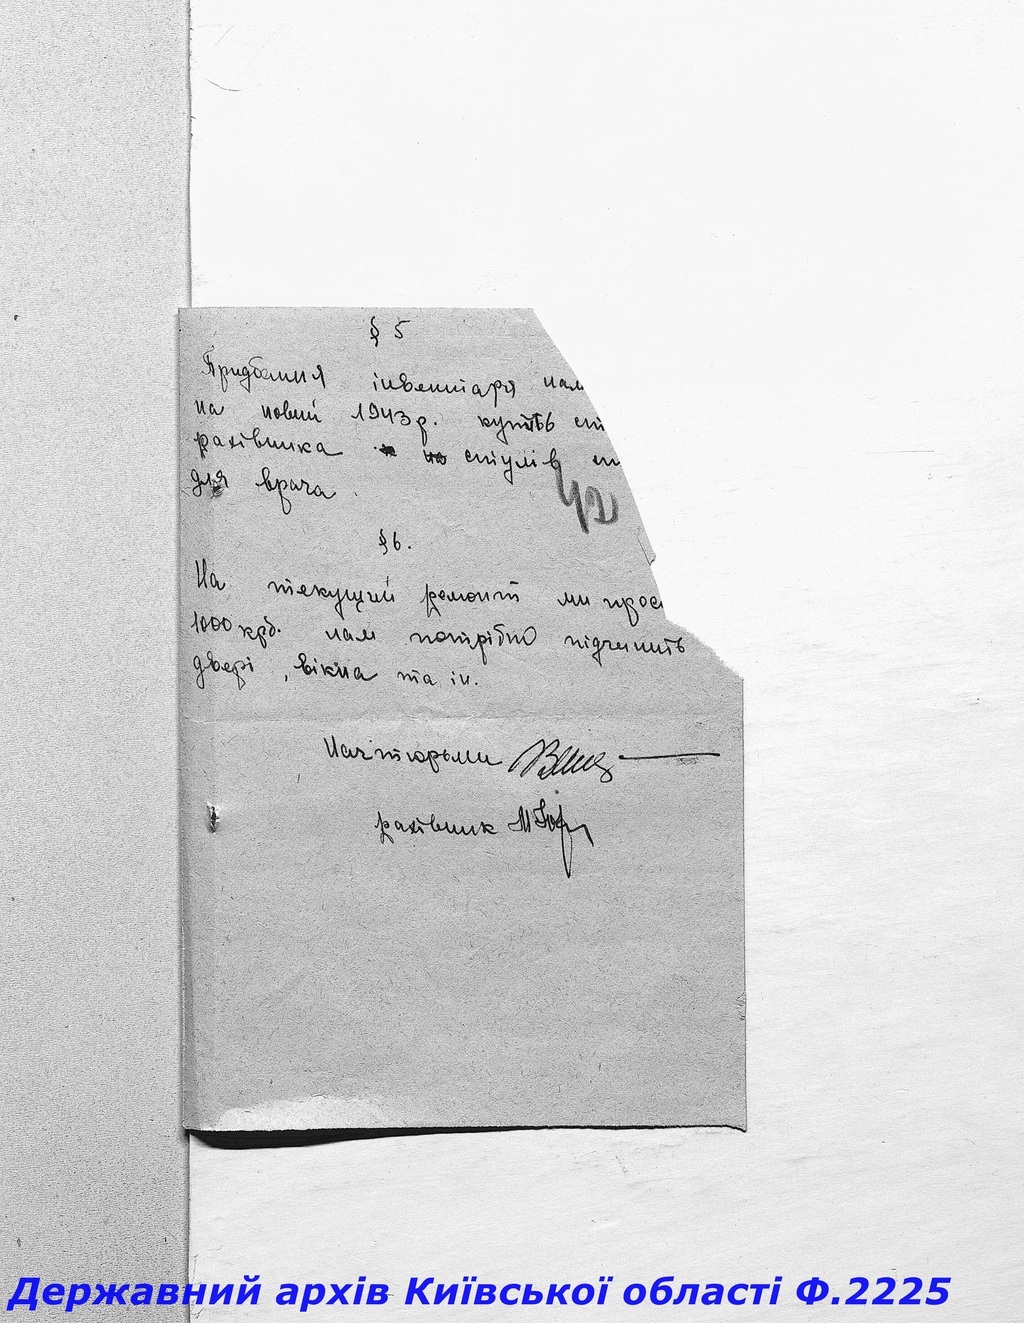 § 5
Придбання інвентаря нам
на новий 1943 р. купить ст
рахівника стулів
для врача.
§ 6.
На текущий ремонт ми прос
1000 крб. нам потрібно підчинить
двері, вікна та ін.
Нач тюрьми
рахівник
Державний архів Київської області Ф.2225